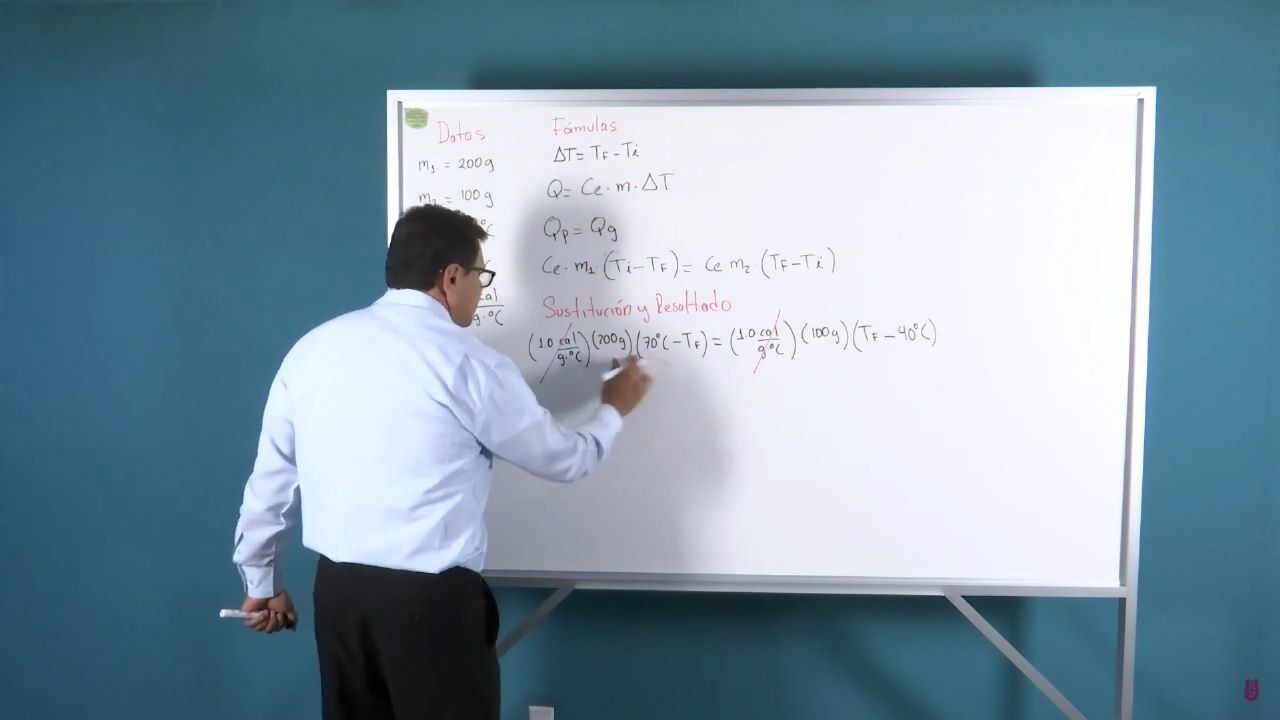 Datos
m₁ = 200g
m₂ = 100g
°C
cal
g·°C
Fámulas
ΔT = TF - Ti
Q = Ce · m · ΔT
Qp = Qg
Ce · m₁ · (Ti - TF) = Ce · m₂ · (TF - Ti)
Sustitución y Resoltado
(1.0 cal/g·°C)(200g)(70°C - TF) = (1.0 cal/g·°C)(100g)(TF - 40°C)